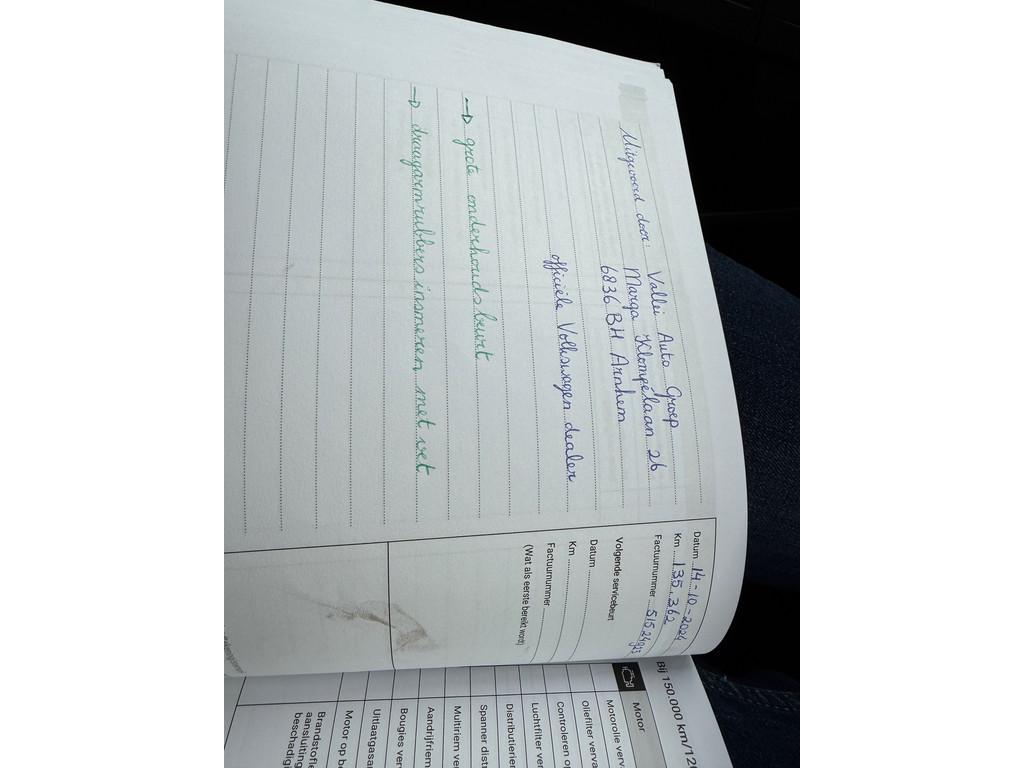 Uitgevoerd door: Vallei Auto Groep
Marga Klompélaan 26
6836 BH Arnhem
officiële Volkswagen dealer
→ grote onderhoudsbeurt
→ draagarmrubbers insmeren met vet
Datum 14-10-2024
Km 135.362
Factuurnummer 51524923
Volgende servicebeurt
Datum
Km
Factuurnummer
(Wat als eerste bereikt wordt)
Bij 150.000 km/12
Motor
Motorolie verv
Oliefilter verva
Controleren op
Luchtfilter ver
Distributierie
Spanner dist
Multiriem ve
Aandrijfriem
Bougies ver
Uitlaatgasa
Motor op b
Brandstofle
aansluiting
beschadigi